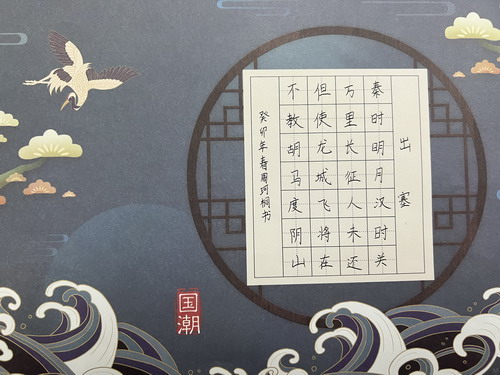 出塞
秦时明月汉时关
万里长征人未还
但使龙城飞将在
不教胡马度阴山
癸卯年春周珂桐书
国潮